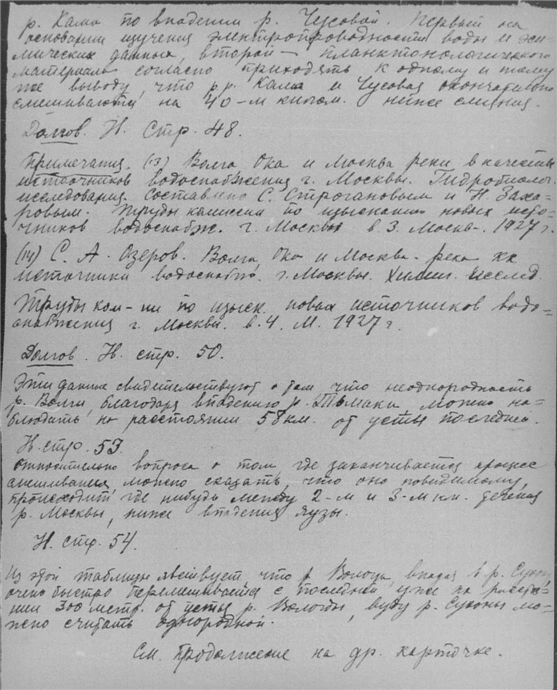 р. Кама по впадении р. Чусовой. Первый на
основании изучения электропроводности воды и хи-
мических данных, второй – планктонологического
материала согласно приходят к одному и тому
же выводу, что р.р. Кама и Чусовая окончательно
смешиваются на 40-м килом. ниже слияния.
Долгов. Н. Стр. 48.
Примечания. (13) Волга Ока и Москва реки, в качестве
источников водоснабжения г. Москвы. Гидробиолог.
исследования. Составлено С. Строгановым и Н. Заха-
ровым. Труды комиссии по изысканию новых исто-
чников водоснабж. г. Москвы в 3. Москва. 1927 г.
(14) С. А. Озеров. Волга, Ока и Москва река как
источники водоснабж. г. Москвы. Химич. исслед.
Труды ком-ии по изыск. новых источников водо-
снабжения г. Москвы. в. 4. М. 1927 г.
Долгов. Н. стр. 50.
Эти данные свидетельствуют о том что неоднородность
р. Волги, благодаря впадению р. Тьмаки можно на-
блюдать на расстоянии 58 км. от устья последней.
Н. стр. 53.
Относительно вопроса о том, где заканчивается процесс
смешивания можно сказать, что оно повидимому,
происходит где нибудь между 2-м и 3-м км. течения
р. Москвы, ниже впадения Яузы.
Н. стр. 54.
Из этой таблицы явствует, что р. Вологда, впадая в р. Сухону
очень быстро перемешивается с последней и уже на расстоя-
нии 300 метр. от устья р. Вологды, воду р. Сухоны мо-
жно считать однородной.
См. продолжение на др. карточке.